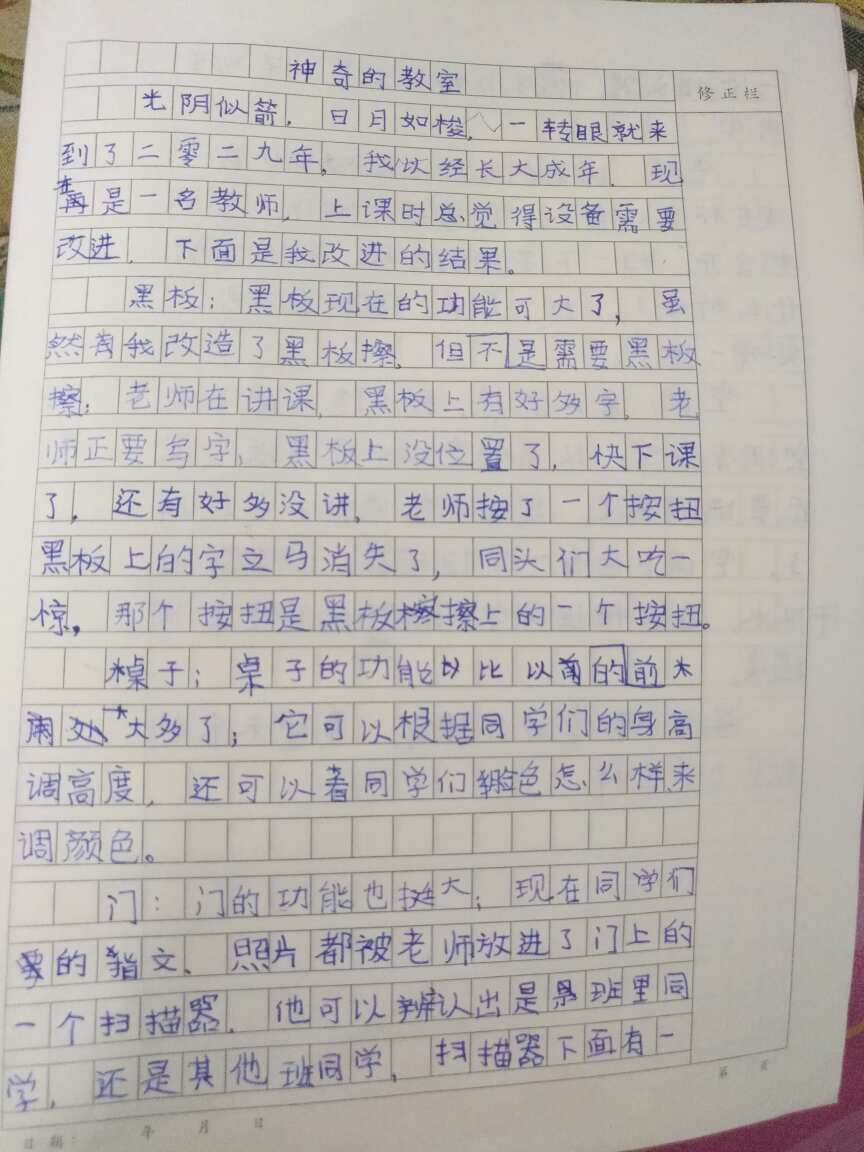 神奇的教室
修正栏
光阴似箭，日月如梭，一转眼就来
到了二零二九年，我以经长大成年，现
在是一名教师，上课时总觉得设备需要
改进，下面是我改进的结果。
黑板：黑板现在的功能可大了，虽
然有我改造了黑板擦，但不是需要黑板
擦；老师在讲课，黑板上有好多字，老
师正要写字，黑板上没位置了，快下课
了，还有好多没讲，老师按了一个按扭
黑板上的字立马消失了，同头们大吃一
惊，那个按扭是黑板擦上的一个按扭。
桌子；桌子的功能以比以前的前大
大多了；它可以根据同学们的身高
调高度，还可以着同学们脸色怎么样来
调颜色。
门：门的功能也挺大；现在同学们
的指文、照片都被老师放进了门上的
一个扫描器，他可以辨认出是班里同
学，还是其他班同学，扫描器下面有一
第 页
日期： 年 月 日